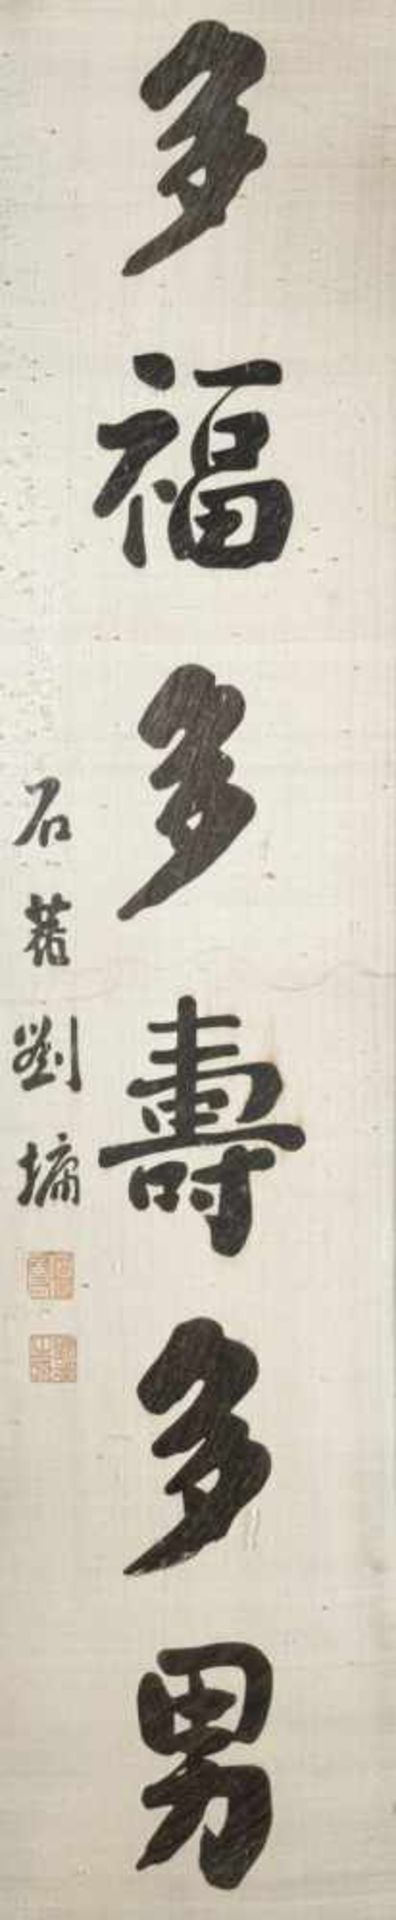 多福多壽多男
石菴劉墉